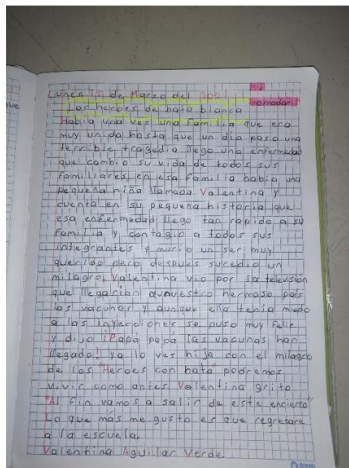 Lunes 15 de Marzo del 2021
Los heroes de bata blanca
Habia una vez una familia que era
muy unida hasta que un dia paso una
terrible tragedia llego una enfermedad
que cambio su vida de todos sus
familiares en esa familia habia una
pequeña niña llamada Valentina y
cuenta en su pequeña historia que
esa enfermedad llego tan rapido a su
familia y contagio a todos sus
integrantes y murio un ser muy
querido pero despues sucedio un
milagro, Valentina vio por la television
que llegarian a nuestro hermoso pais
las vacunas y aunque ella tenia miedo
a las inyecciones se puso muy feliz
y dijo ¡Papa papa las vacunas han
llegado! ya lo ves hija con el milagro
de los "Heroes con bata podremos
vivir como antes Valentina grito
"Al fin vamos a salir de este encierro"
Lo que mas me gusto es que regresare
a la escuela
Valentina Aguilar Verde